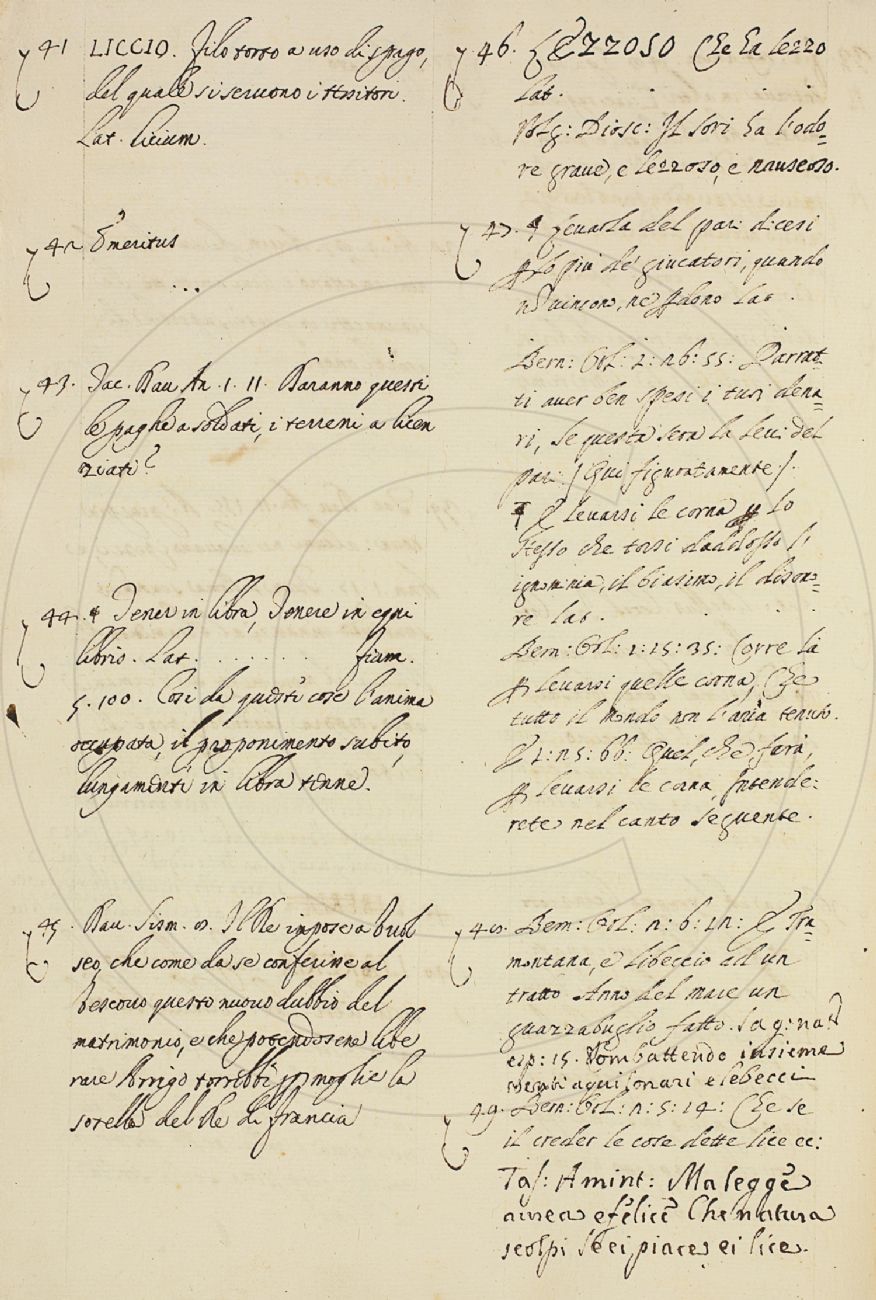 41 LICCIO. Filo torto a uso di spago,
del quale si servono i tessitori.
Lat. licium.
42 Emeritus
...
43. Dav. An. 1. 11. Baranno questi
le paghe a soldati, i terreni a licen
ziati?
44. Tener in libra, Tenere in equi
librio. Lat. . . . . . .
5. 100. Così da questi cose l'anima
occupata, il proponimento subito,
lungamente in libra tenne.
45. Dav. Scism. Il Re impose a Vuol
seo, che come da se conferisse al
Vescovo questo nuovo dubbio del
matrimonio, e che potendosene libe
rare Arrigo torrebbe p moglie la
sorella del Re di francia
46. LEZZOSO Che ha lezzo
Lat.
Volg: Diosc: Il sori ha l'odo=
re grave, e lezzoso, e nauseoso.
47. Levarla del pari dicesi
p lo più de' giucatori, quando
nõ vincono, ne pdono Lat .
Bern: Orl: 2: 26: 55: Parrat=
ti aver ben spesi i tuoi dena=
ri, se questa sera la levi del
pari (Qui figuratamente).
E levarsi le corna p lo
stesso che torsi daddosso l'
ignominia, il biasimo, il disono=
re lat.
Bern: Orl: 1: 25: 35: Corre là
p levarsi quelle corna, Che
tutto il mondo non l'aria tenuto.
E 2: 25: 66: Quel, che farà,
p levarsi le corna, Intende=
rete nel canto seguente.
48. Bern: Orl: 2: 6: 12: E Tra=
montana, e libeccio ad un
tratto Anno del mare un
guazzabuglio fatto. Sag: nat
esp: 15. Combattendo insieme
venti aquilonari e lebecci
49. Bern: Orl: 2: 5: 14: Che se
il creder le cose dette lice ec:
Tas: Amint: Ma legge
aurea e felice Che natura
scolpì S'ei piace, ei lice.